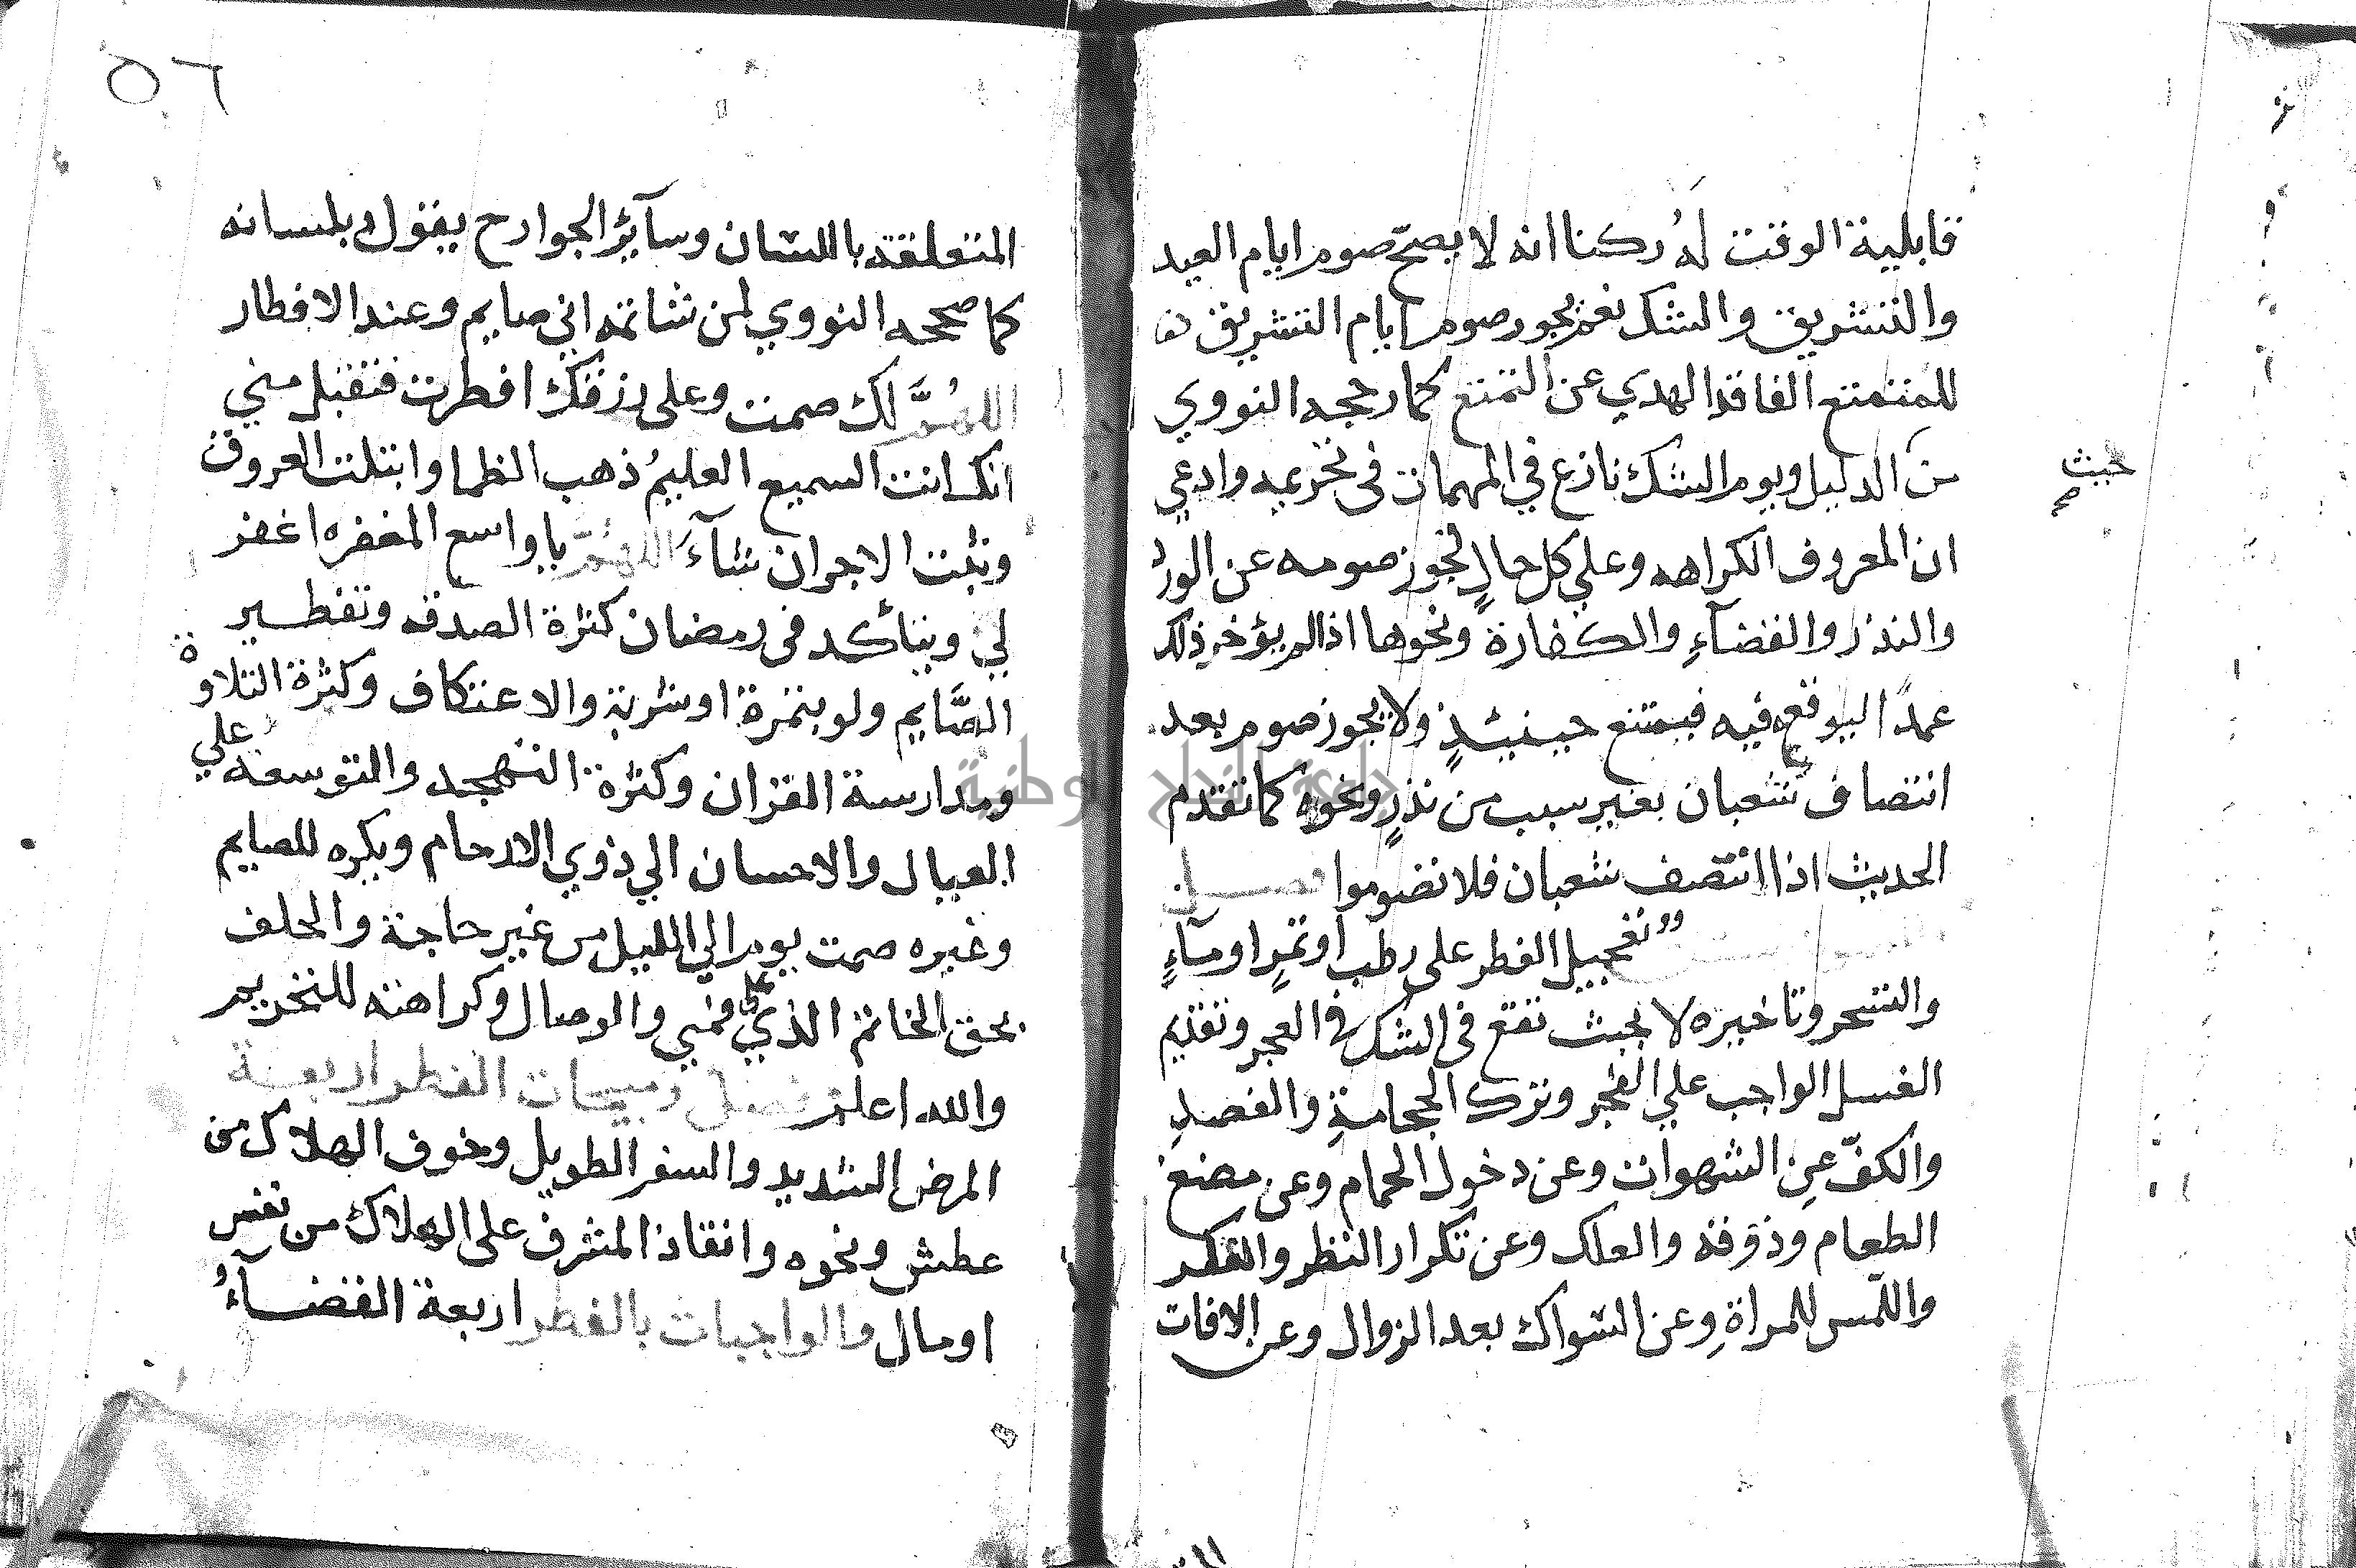 قابلية الوقت لهُ ركنا انه لا يصحّ صوم ايام العيد
والتشريق والشك نعم يجوز صوم ايام التشريق
للمتمتع الفاقد الهدي عن التمتع كما رجحه النووي
من الدليل ويوم الشك نازع في المهمات فى تحريمه وادعي
حيث
صح
ان المعروف الكراهه وعلي كل حالٍ يجوز صومه عن الورد
والنذر والقضآءِ والكفارة ونحوها اذا لم يؤخر ذلك
عمداً ليوقعه فيه فيمتنع حينئذٍ ولا يجوز صوم بعد
انتصاف شعبان بغير سبب من نذرٍ ونحوه كما تقدم
الحديث اذا انتصف شعبان فلا تصوموا فصل
تعجيل الفطر على رطب او تمرٍ او مآءٍ
والتسحر وتاخيره لا بحيث تقع فى الشك في الفجر وتقديم
الغسل الواجب علي الفجر وترك الحجامةِ والفصدِ
والكفّ عن الشهوات وعن دخول الحمام وعن مضغ
الطعام وذوقه والعلك وعن تكرار النظر والفكر
واللّمس للمراةِ وعن السواك بعد الزوال وعن الافات
٥٦
المتعلقه باللسان وسآئر الجوارح يقول بلسانه
كما صححه النووي لمن شاتمه اني صايم وعند الافطار
اللهُمَّ لك صمت وعلى رزقك افطرت فتقبل مني
انك انت السميع العليمُ ذهب الظما وابتلت العروق
وثبت الاجر ان شآءَ اللهُمَّ يا واسع المغفره اغفر
لي ويتاكد فى رمضان كثرة الصدقه وتفطير
الصَّايم ولو بتمرة او شربة والاعتكاف وكثرة التلاوة
ومدارسة القران وكثرة التهجد والتوسعه علي
العيال والاحسان الي ذوي الارحام ويكره للصايم
وغيره صمت يوم الي الليل من غير حاجة والحلف
بحق الخاتم الذي على فمي والوصال وكراهته للتحريم
والله اعلم فصل ومبيحات الفطر اربعة
المرض الشديد والسفر الطويل وخوف الهلاك من
عطش ونحوه وانقاذ المشرف على الهلاك من نفس
او مال والواجبات بالفطر اربعة القضآءُ
جامعة النجاح الوطنية